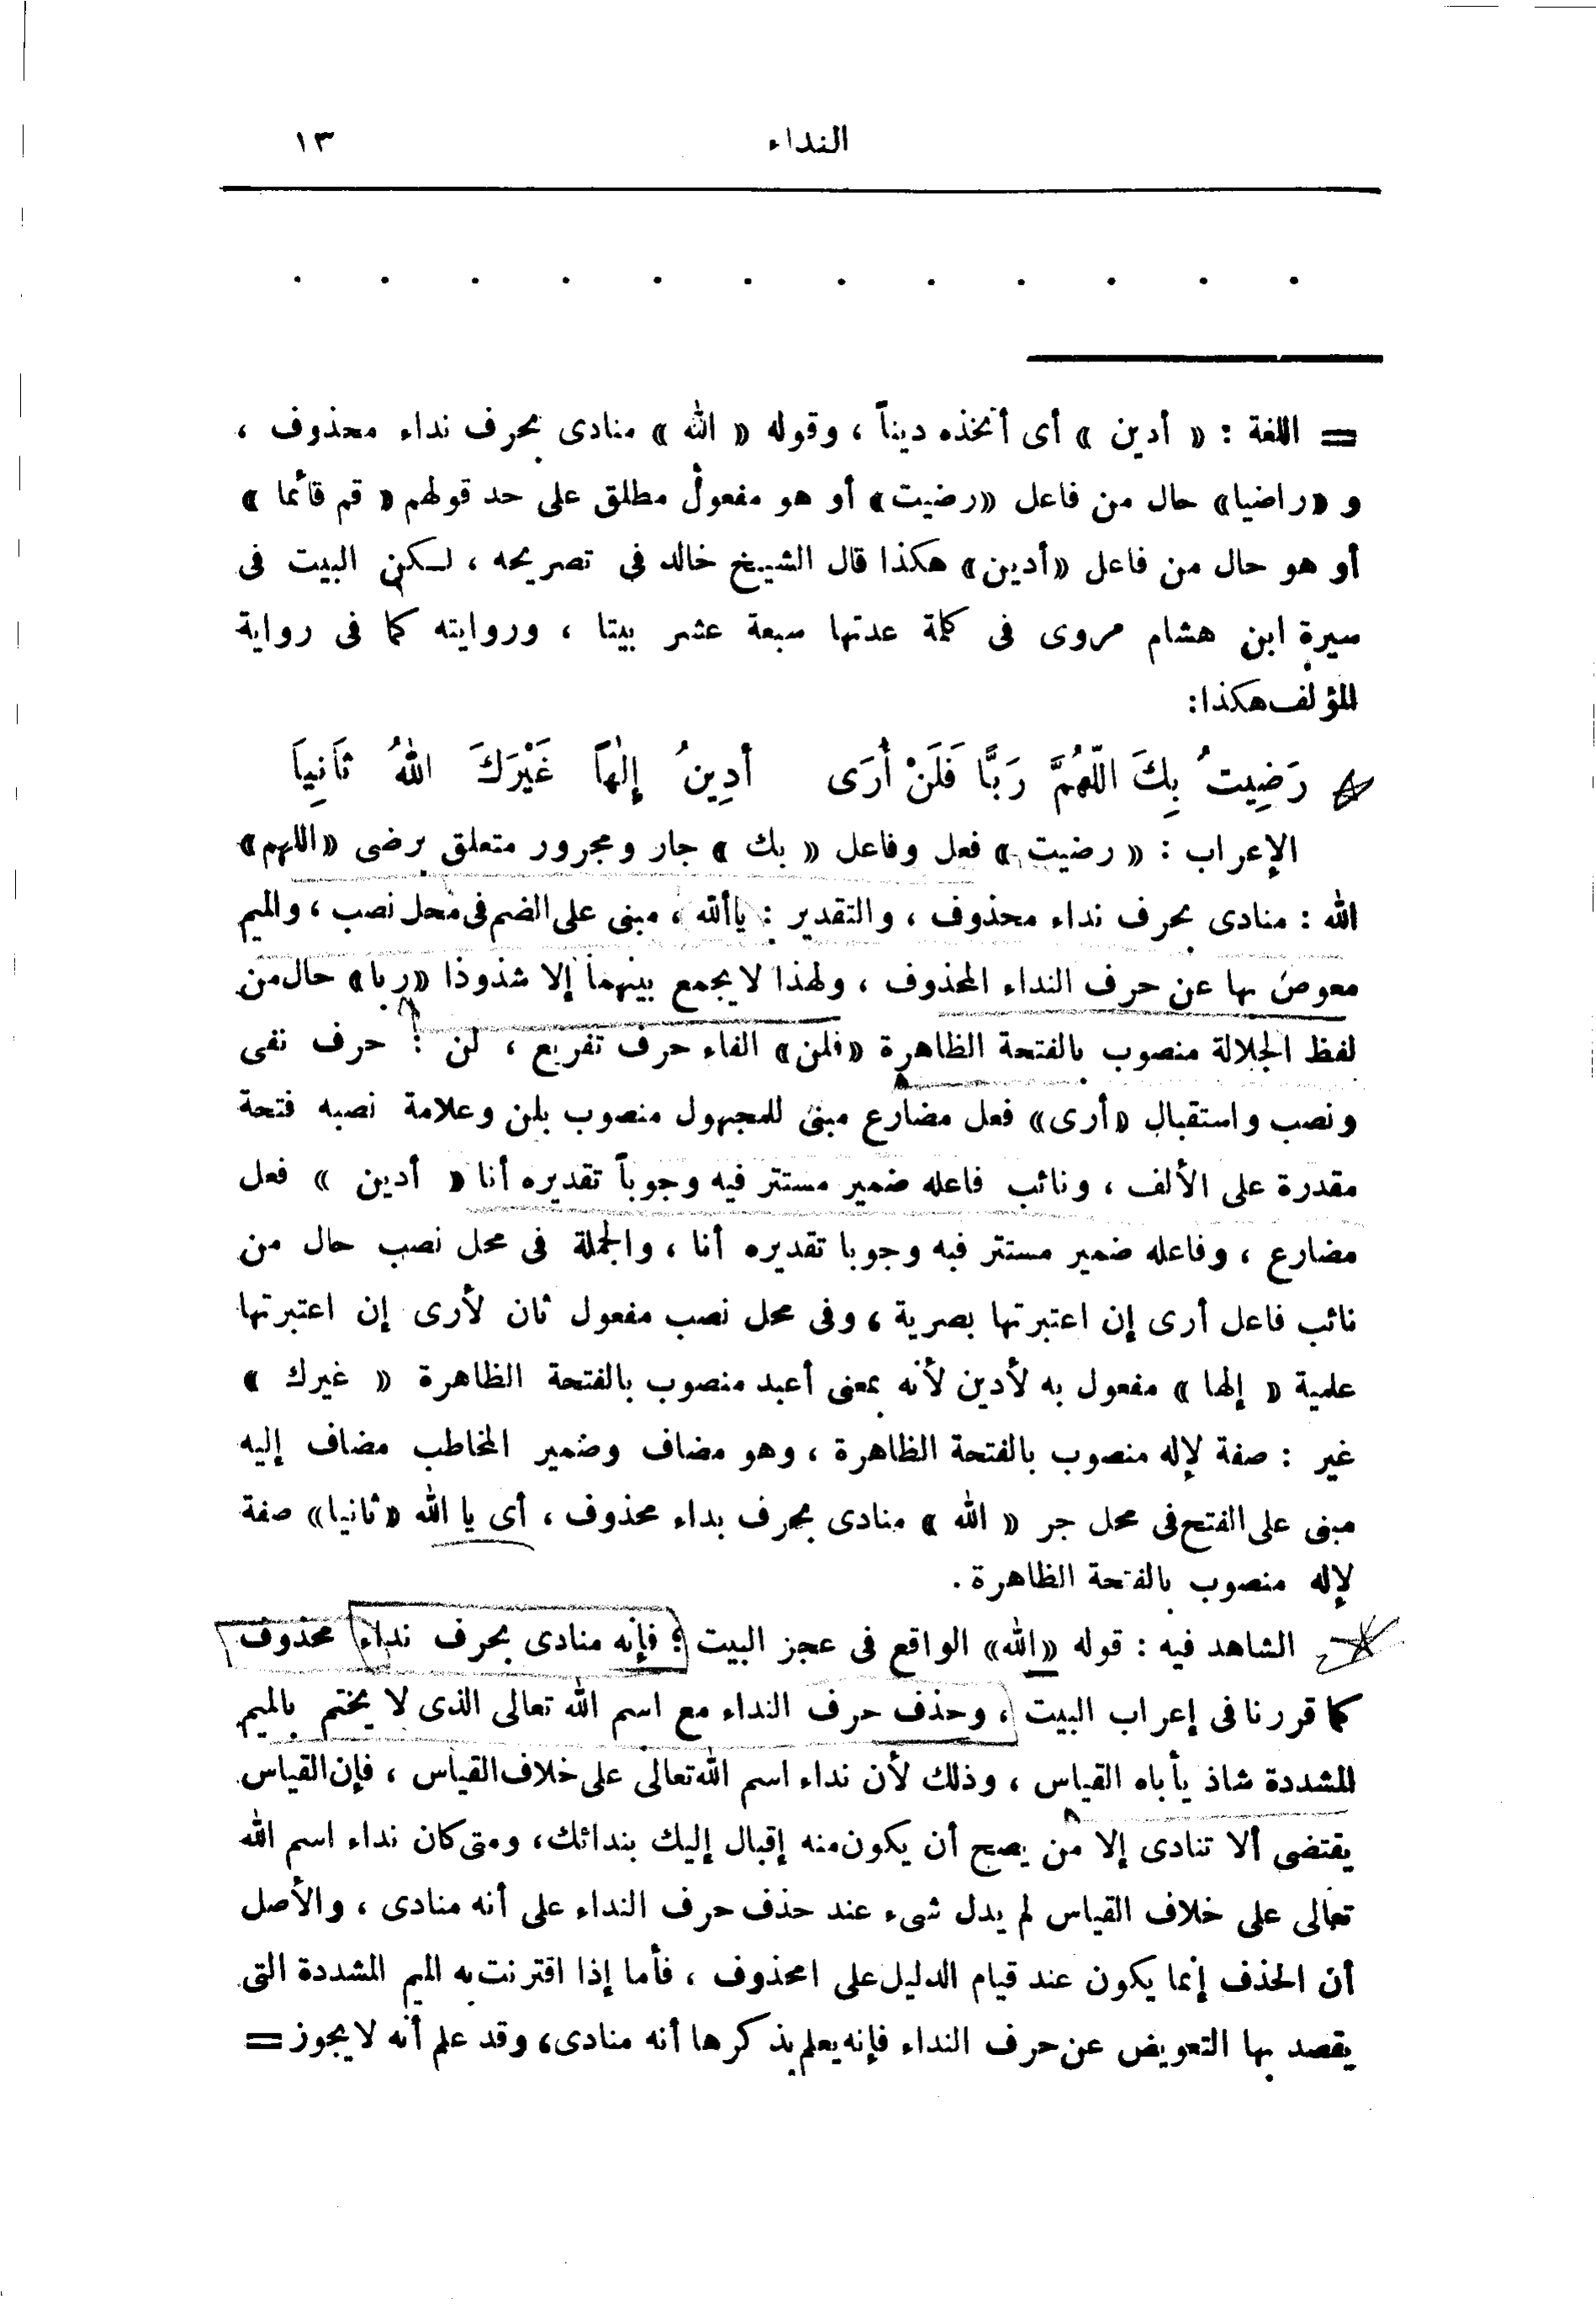 النداء ١٣
. . . . . . . . . . . .
= اللغة : « أدين » أى أتخذه ديناً ، وقوله « الله » منادى بحرف نداء محذوف ،
و «راضيا» حال من فاعل «رضيت» أو هو مفعول مطلق على حد قولهم « قم قائما »
أو هو حال من فاعل «أدين» هكذا قال الشيخ خالد فى تصريحه ، لكن البيت فى
سيرة ابن هشام مروى فى كلمة عدتها سبعة عشر بيتا ، وروايته كما فى رواية
المؤلف هكذا:
رَضِيتُ بِكَ اللَّهُمَّ رَبًّا فَلَنْ أُرَى أَدِينُ إِلٰهاً غَيْرَكَ اللهُ ثَانِياَ
الإعراب : « رضيت » فعل وفاعل « بك » جار ومجرور متعلق برضى «اللهم»
الله : منادى بحرف نداء محذوف ، والتقدير : يا ألله ، مبنى على الضم فى محل نصب ، والميم
معوض بها عن حرف النداء المحذوف ، ولهذا لا يجمع بينهما إلا شذوذا «ربا» حال من
لفظ الجلالة منصوب بالفتحة الظاهرة «فلن» الفاء حرف تفريع ، لن : حرف نفى
ونصب واستقبال «أرى» فعل مضارع مبنى للمجهول منصوب بلن وعلامة نصبه فتحة
مقدرة على الألف ، ونائب فاعله ضمير مستتر فيه وجوباً تقديره أنا « أدين » فعل
مضارع ، وفاعله ضمير مستتر فيه وجوبا تقديره أنا ، والجملة فى محل نصب حال من
نائب فاعل أرى إن اعتبرتها بصرية ، وفى محل نصب مفعول ثان لأرى إن اعتبرتها
علمية « إلها » مفعول به لأدين لأنه بمعنى أعبد منصوب بالفتحة الظاهرة « غيرك »
غير : صفة لإله منصوب بالفتحة الظاهرة ، وهو مضاف وضمير المخاطب مضاف إليه
مبنى على الفتح فى محل جر « الله » منادى بحرف بداء محذوف ، أى يا الله «ثانيا» صفة
لإله منصوب بالفتحة الظاهرة .
الشاهد فيه : قوله «الله» الواقع فى عجز البيت ؛ فإنه منادى بحرف نداء محذوف
كما قررنا فى إعراب البيت ، وحذف حرف النداء مع اسم الله تعالى الذى لا يختم بالميم
المشددة شاذ يأباه القياس ، وذلك لأن نداء اسم الله تعالى على خلاف القياس ، فإن القياس
يقتضى ألا تنادى إلا من يصح أن يكون منه إقبال إليك بندائك، ومتى كان نداء اسم الله
تعالى على خلاف القياس لم يدل شىء عند حذف حرف النداء على أنه منادى ، والأصل
أن الحذف إنما يكون عند قيام الدليل على المحذوف ، فأما إذا اقترنت به الميم المشددة التى
يقصد بها التعويض عن حرف النداء فإنه يعلم بذكرها أنه منادى، وقد علم أنه لا يجوز =